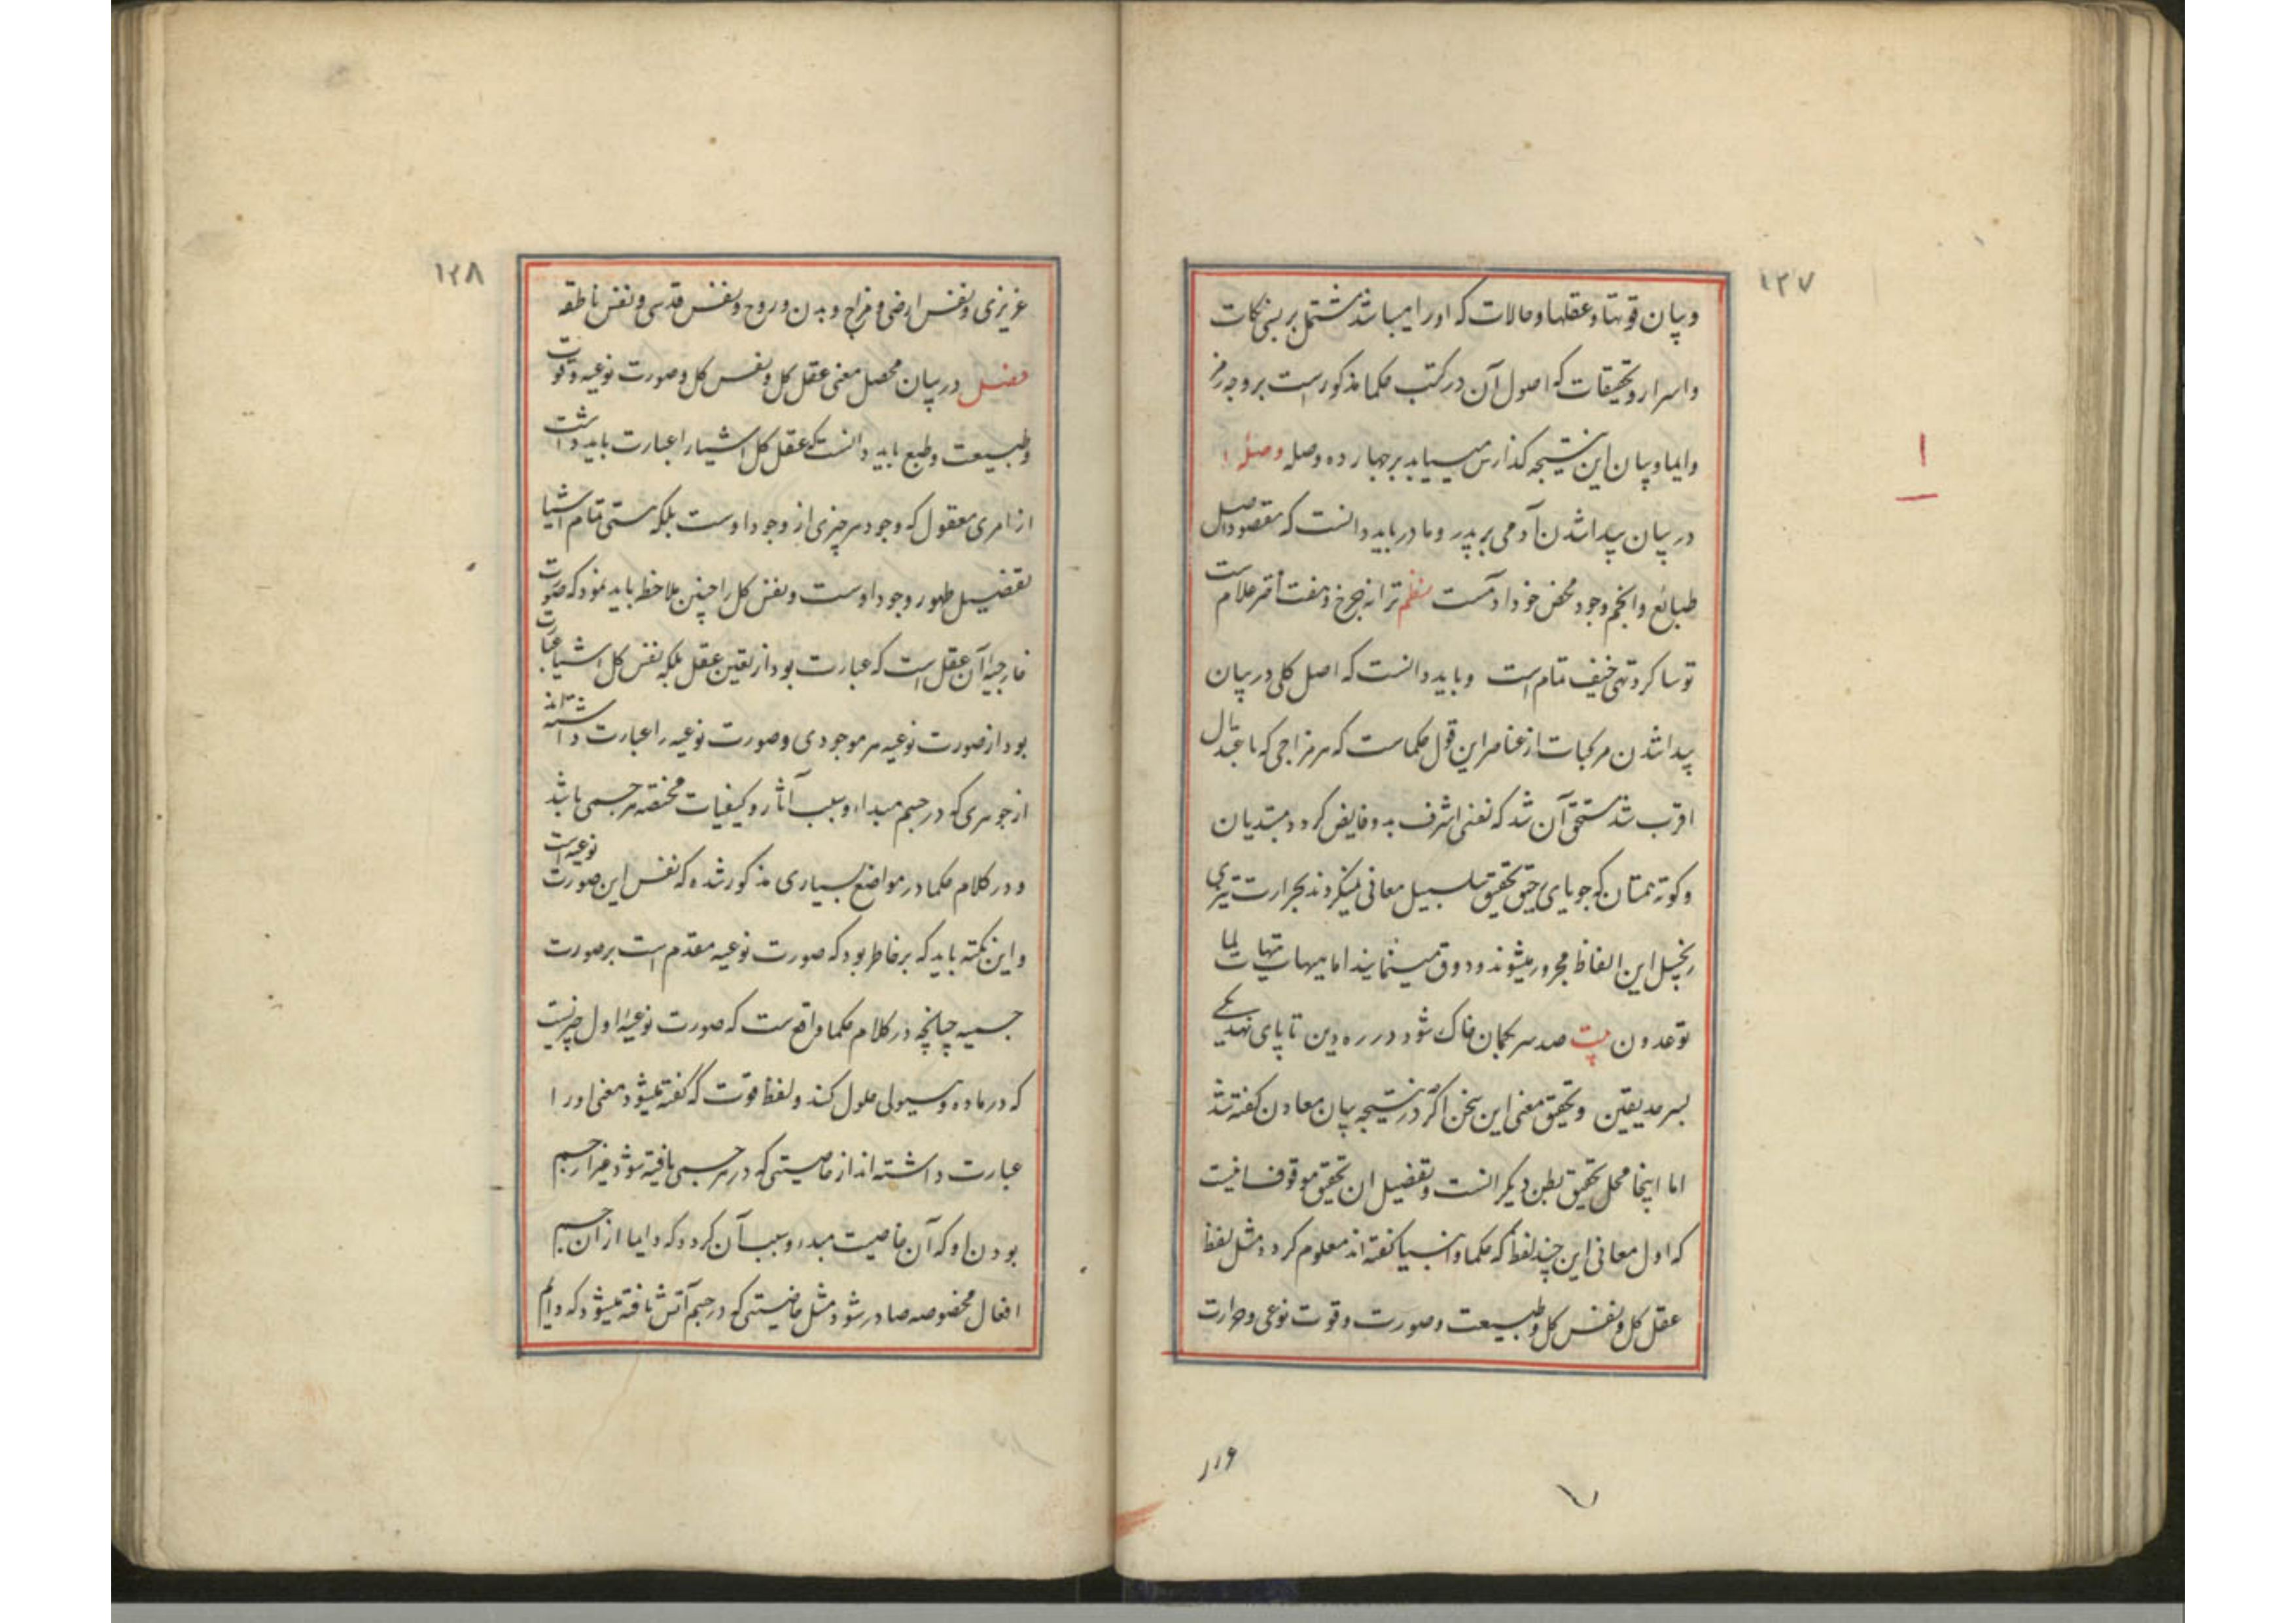 ۱۲۷
و بیان قوتها و عقلها و حالات که او را میباشد مشتمل بر بسی نکات
و اسرار و تحقیقات که اصول آن در کتب حکما مذکور است بر وجه رمز
و ایما و بیان این نتیجه گذارش مییابد بر چهارده وصله وصله ۱
در بیان پیدا شدن آدمی بی پدر و مادر باید دانست که مقصود اصل
طبایع و انجم وجود محض خود آدمست نظم ترا نه چرخ و هفت اختر غلام است
تو شاگرد تنی حیف تمام است و باید دانست که اصل کلی در بیان
پیدا شدن مرکبات از عناصر این قول حکماست که هر مزاجی که باعتدال
اقرب شد مستحق آن شد که نفسی اشرف بدو فایض گردد مبتدیان
و کوته همتان که جویای تحقیق سلسبیل معانی میگردند بحرارت تیزی
زنجبیل این الفاظ محرور میشوند و ذوق مینمایند اما هیهات هیهات لما
توعدون بیت صد سر بکمان خاک شود در ره دین تا پای نهد یکی
بسر حد یقین و تحقیق معنی این سخن اگر در نتیجه بیان معادن گفته شد
اما اینجا محل تحقیق بطن دیگر است و تفصیل ان تحقیق موقوف
که اول معانی این چند لفظ که حکما و انبیا گفته اند معلوم گردد مثل لفظ
عقل کل و نفس کل و طبیعت و صورت و قوت نوعی و حرارت
۱
۱۲۸
غریزی و نفس ارضی و مزاج و بدن و روح و نفس قدسی و نفس ناطقه
فصل در بیان محصل معنی عقل کل و نفس کل و صورت نوعیه و قوت
و طبیعت و طبع باید دانست که عقل کل اشیا را عبارت باید داشت
از امری معقول که وجود هر چیزی از وجود اوست بلکه هستی تمام اشیا
تفصیل ظهور وجود اوست و نفس کل را چنین ملاحظه باید نمود که صورت
خارجیه آن عقل است که عبارت بود از تعین عقل بلکه نفس کل اشیا عبارت
بود از صورت نوعیه هر موجودی و صورت نوعیه را عبارت داشته اند
از جوهری که در جسم مبداء و سبب آثار و کیفیات مختصه هر جسمی باشد
و در کلام حکما در مواضع بسیاری مذکور شده که نفس این صورت نوعیه است
و این نکته باید که بر خاطر بود که صورت نوعیه مقدم است بر صورت
جسمیه چنانچه در کلام حکما واقع ست که صورت نوعیه اول چیزیست
که در ماده و هیولی حلول کند و لفظ قوت که گفته میشود معنی او را
عبارت داشته اند از خاصیتی که در هر جسمی یافته شود غیر از جسم
بودن او که آن خاصیت مبدء و سبب آن گردد که دایما از آن جسم
افعال مخصوصه صادر شود مثل خاصیتی که در جسم آتش یافته میشود که دایم